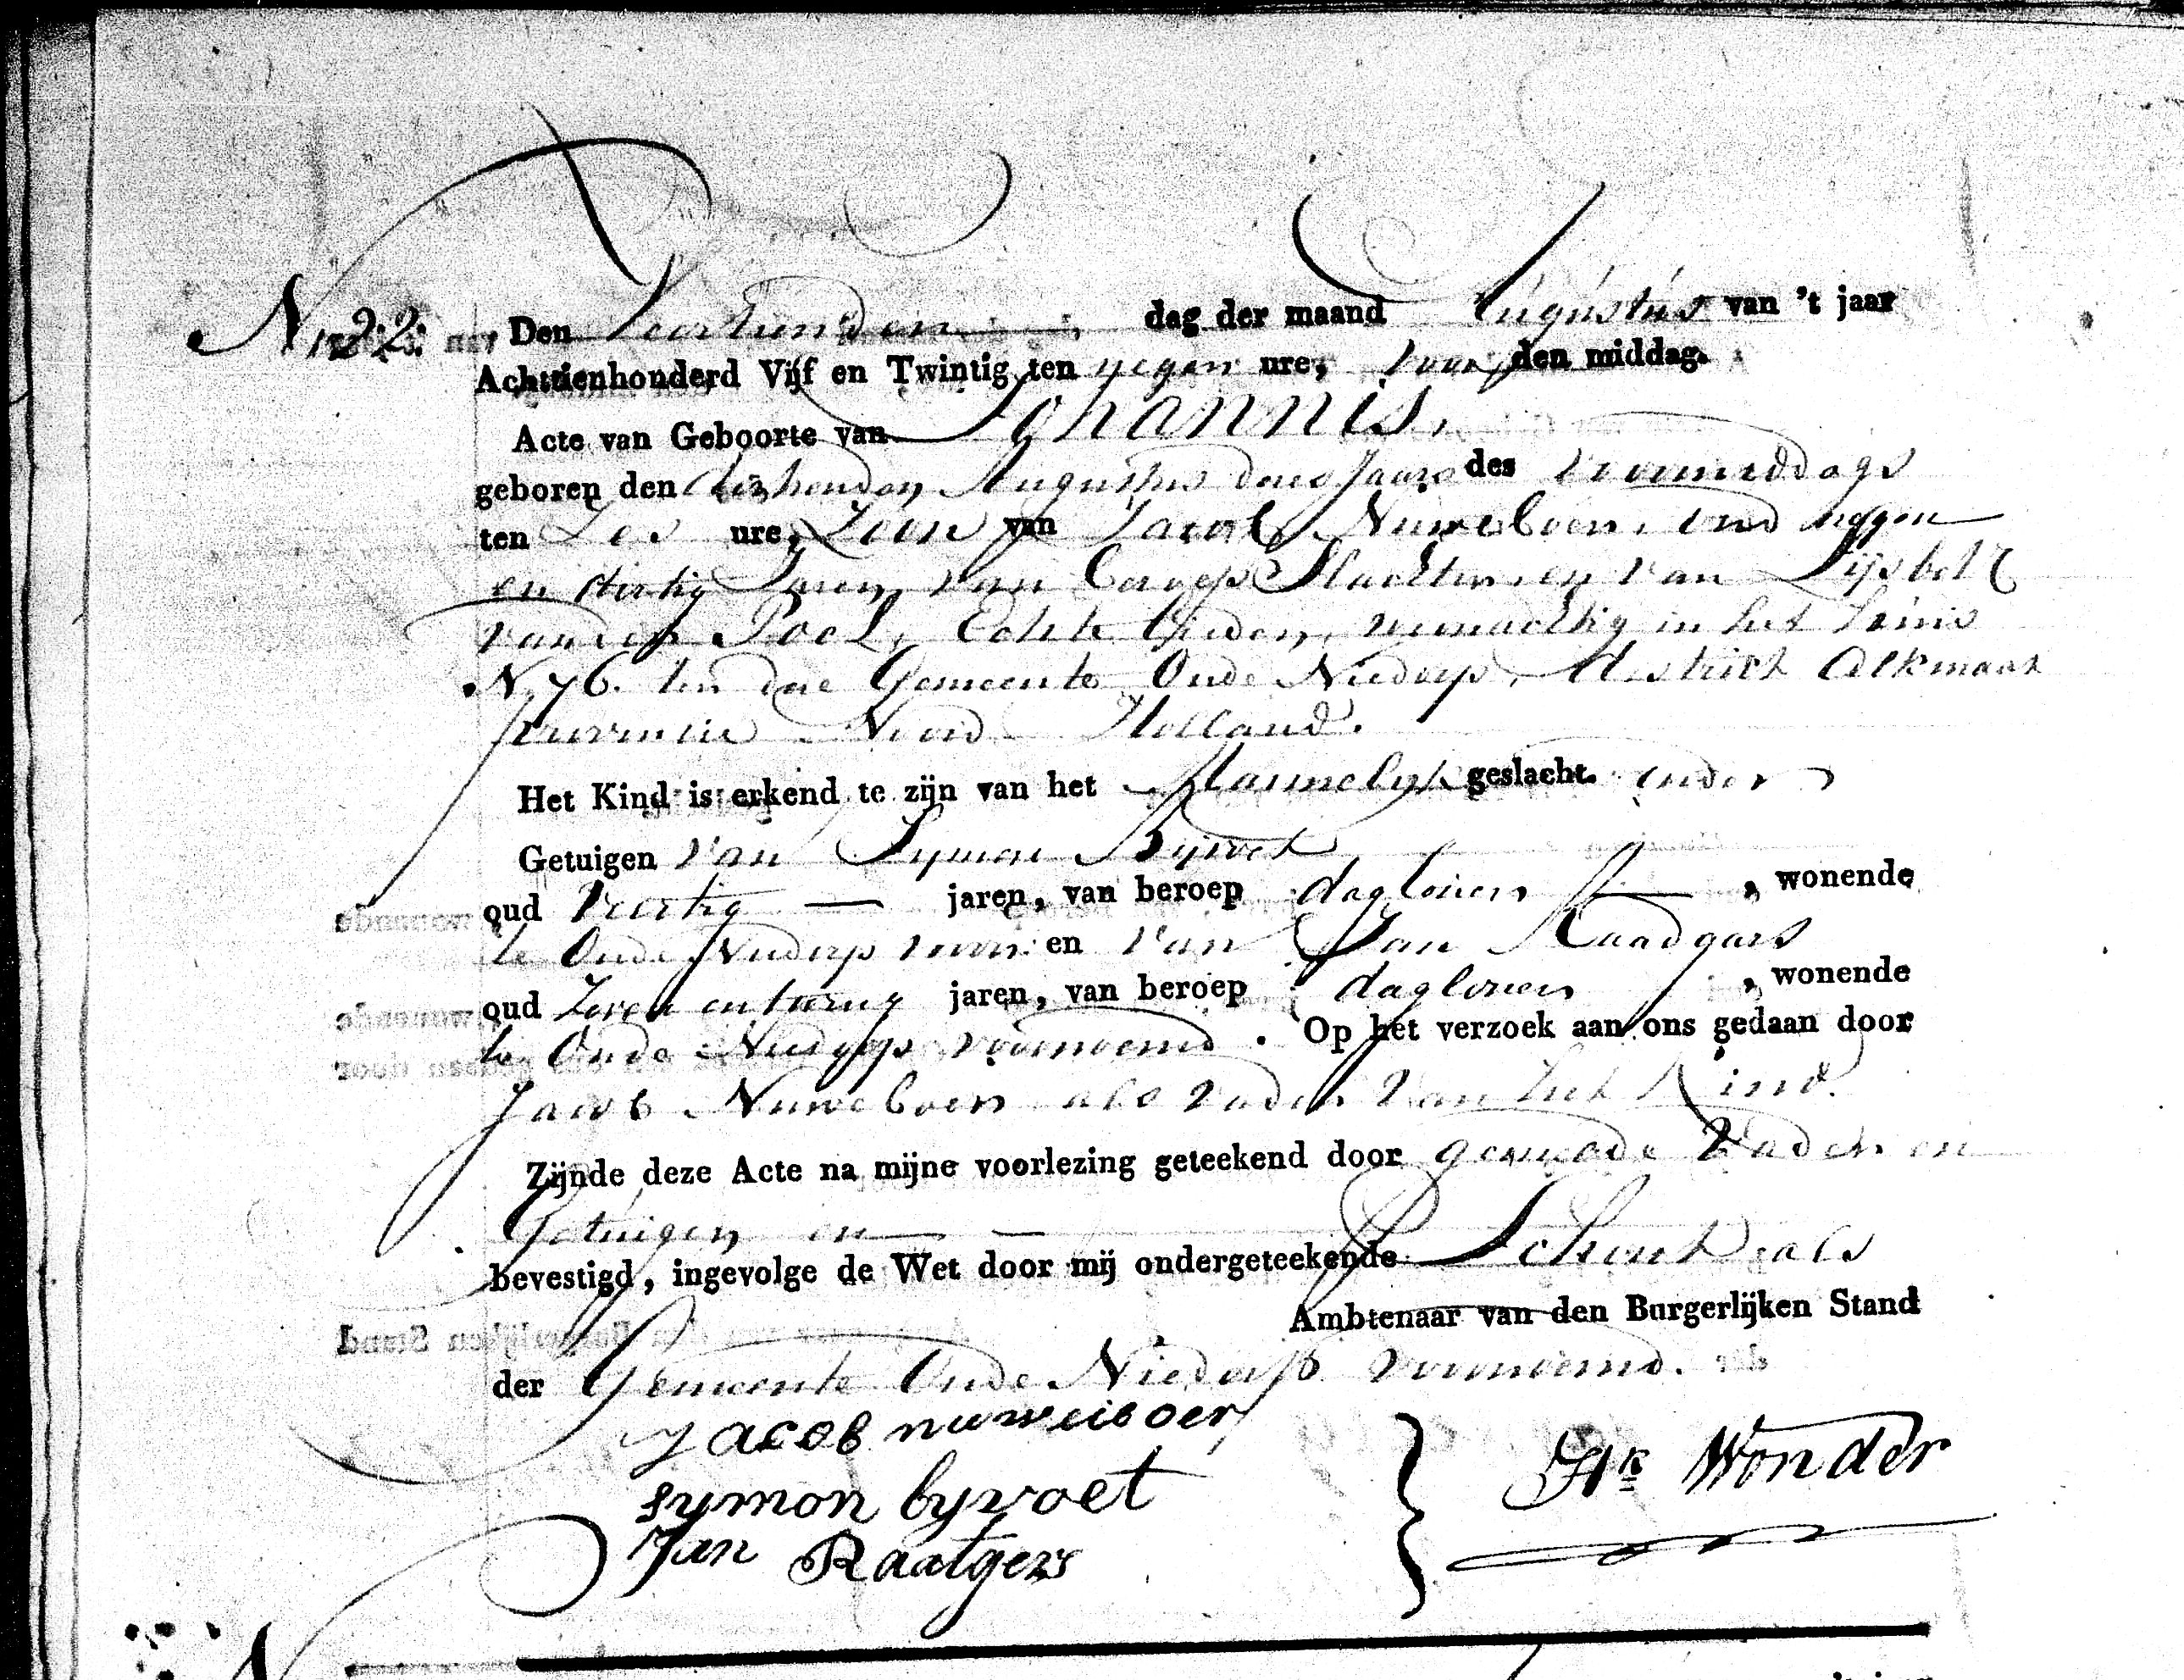 No 22. Den Veertienden dag der maand Augústus van 't jaar
Achttienhonderd Vijf en Twintig ten negen ure, voor den middag.
Acte van Geboorte van Johannis,
geboren den dertienden Augustus dezes Jaars des voormiddags
ten Zes ure, Zoon van Jacob Nuweboer, oud negen
en dertig Jaren, van beroep Slachter, en van Lijsbeth
van der Poel, Echte lieden, woonachtig in het húis
No 76. ten dese Gemeente Oude Niedorp, district Alkmaar
provincie Noord Holland.
Het Kind is erkend te zijn van het Mannelijk geslacht. onder
Getuigen van Symon Bijvoet
oud Veertig — jaren, van beroep dagloner — , wonende
te Oude Niedorp voorn: en van Jan Raadgers
oud Zeven en jaren, van beroep dagloner , wonende
te Oude Niedorp voornoemd. Op het verzoek aan ons gedaan door
Jacob Nuweboer als vader van het Kind.
Zijnde deze Acte na mijne voorlezing geteekend door gemelde Vader en
Getuigen en —
bevestigd, ingevolge de Wet door mij ondergeteekende Schout als
Ambtenaar van den Burgerlijken Stand
der Gemeente Oude Niedorp voornoemd.
Jacob nuweiboer
symon byvoet
Jan Raatgers
Hk Wonder